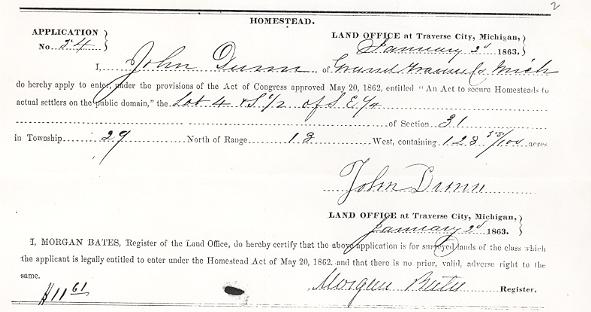 2
HOMESTEAD.
APPLICATION
No. 24
LAND OFFICE at Traverse City, Michigan,
January 2d 1863.
I, John Dunn of Grand Traverse Co Mich
do hereby apply to enter, under the provisions of the Act of Congress approved May 20, 1862, entitled "An Act to secure Homesteads to
actual settlers on the public domain," the Lot 4 & S 1/2 of S. E. 1/4
of Section 31
in Township 29 North of Range 13 West, containing 123 /100 acres
John Dunn
LAND OFFICE at Traverse City, Michigan,
January 2d 1863.
I, MORGAN BATES, Register of the Land Office, do hereby certify that the above application is for surveyed lands of the class which
the applicant is legally entitled to enter under the Homestead Act of May 20, 1862, and that there is no prior, valid, adverse right to the
same.
Morgan Bates Register.
$11 61